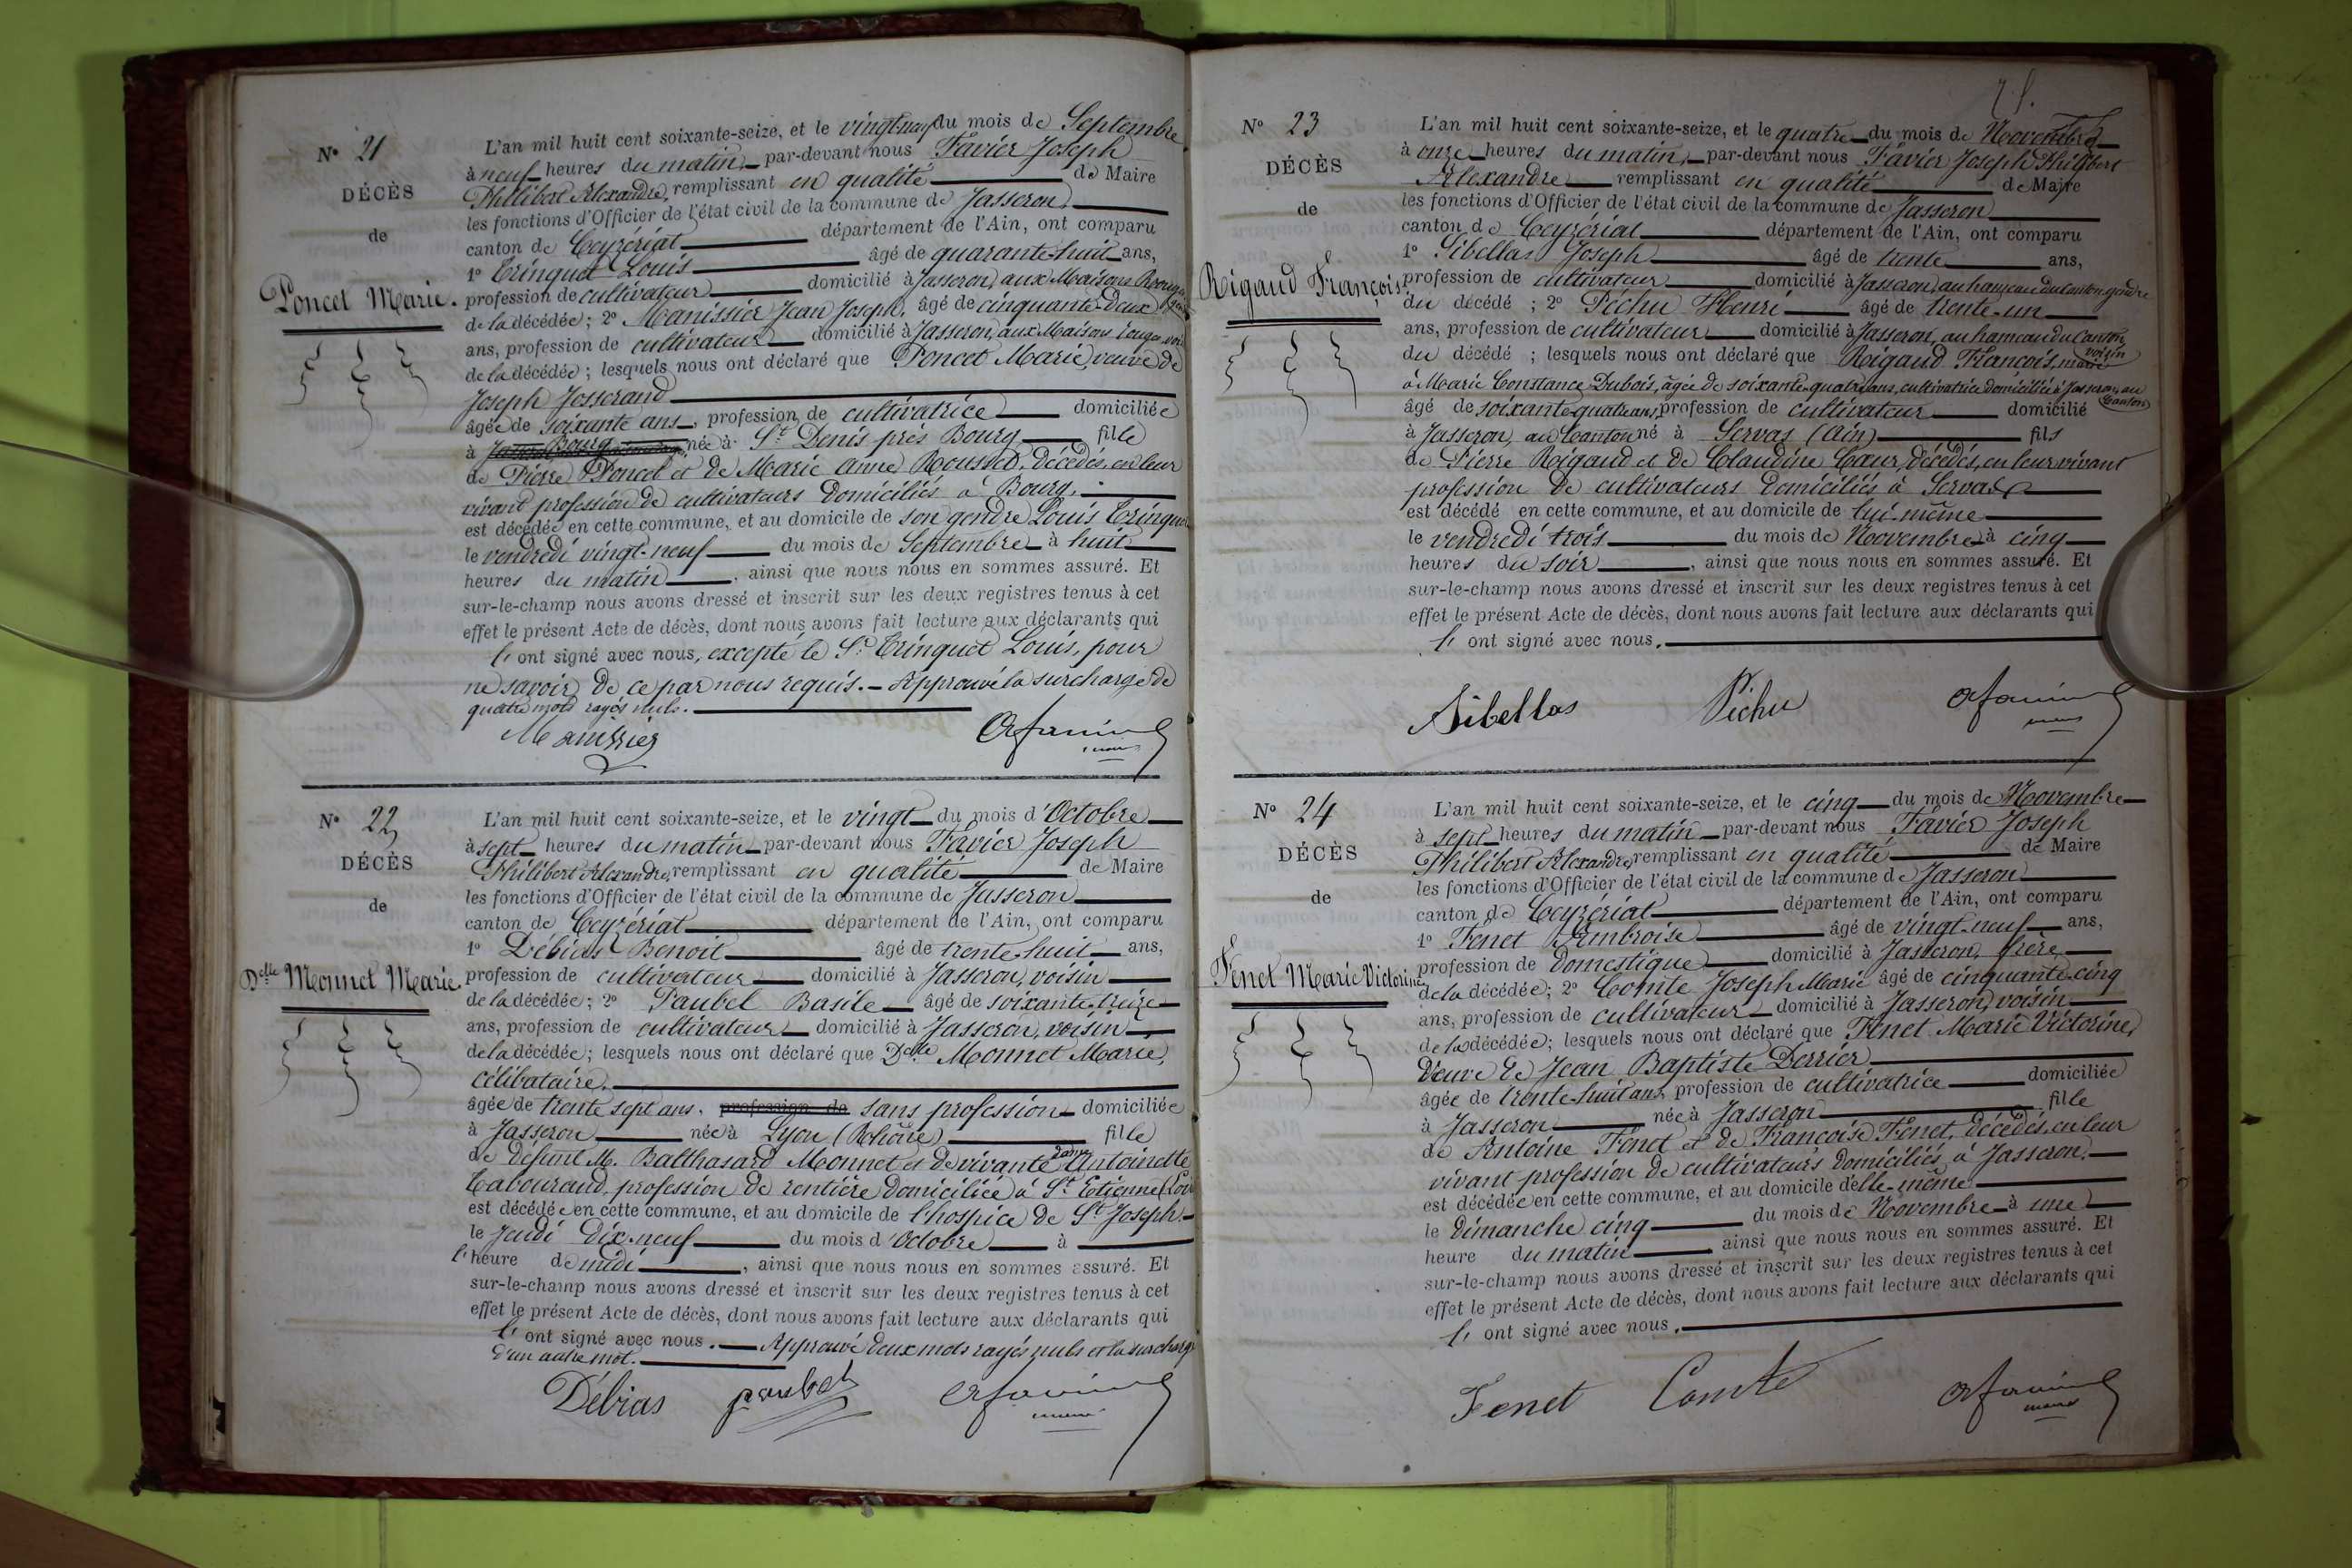 N° 21
DÉCÈS
de
Poncet Marie.
L'an mil huit cent soixante-seize, et le vingt-neuf du mois de Septembre
à neuf heures du matin, par-devant nous Favier Joseph
Philibert Alexandre, remplissant en qualité de Maire
les fonctions d'Officier de l'état civil de la commune de Jasseron
canton de Ceyzériat département de l'Ain, ont comparu
1° Trinquet Louis âgé de quarante-huit ans,
profession de cultivateur domicilié à Jasseron, aux Maisons Rouges, gendre
de la décédée; 2° Manissier Jean Joseph, âgé de cinquante-deux
ans, profession de cultivateur domicilié à Jasseron, aux Maisons Rouges, voisin
de la décédée; lesquels nous ont déclaré que Poncet Marie, veuve de
Joseph Josserand
âgée de soixante ans, profession de cultivatrice domiciliée
à née à St Denis près Bourg fille
de Pierre Poncet et de Marie Aime Rousset, décédés, en leur
vivant profession de cultivateurs domiciliés à Bourg,
est décédée en cette commune, et au domicile de son gendre Louis Trinquet
le vendredi vingt-neuf du mois de Septembre à huit
heures du matin, ainsi que nous nous en sommes assuré. Et
sur-le-champ nous avons dressé et inscrit sur les deux registres tenus à cet
effet le présent Acte de décès, dont nous avons fait lecture aux déclarants qui
l' ont signé avec nous, excepté le Sr Trinquet Louis, pour
ne savoir de ce par nous requis. – Approuvé la surcharge de
quatre mots rayés nuls.
Manissier
N° 22
DÉCÈS
de
Delle Monnet Marie.
L'an mil huit cent soixante-seize, et le vingt du mois d'Octobre
à sept heures du matin par-devant nous Favier Joseph
Philibert Alexandre, remplissant en qualité de Maire
les fonctions d'Officier de l'état civil de la commune de Jasseron
canton de Ceyzériat département de l'Ain, ont comparu
1° Débias Benoit âgé de trente-huit ans,
profession de cultivateur domicilié à Jasseron, voisin
de la décédée; 2° Paubel Basile âgé de soixante-treize
ans, profession de cultivateur domicilié à Jasseron, voisin
de la décédée; lesquels nous ont déclaré que Delle Monnet Marie,
célibataire.
âgée de trente sept ans, profession de sans profession domiciliée
à Jasseron née à Lyon (Rhône) fille
de défunt M. Balthasard Monnet et de vivante dame Antoinette
Tabouraud, profession de rentière domiciliée à St Etienne (Loire
est décédée en cette commune, et au domicile de l'hospice de St Joseph
le Jeudi dix-neuf du mois d'Octobre à
l'heure de midi, ainsi que nous nous en sommes assuré. Et
sur-le-champ nous avons dressé et inscrit sur les deux registres tenus à cet
effet le présent Acte de décès, dont nous avons fait lecture aux déclarants qui
l' ont signé avec nous. – Approuvé deux mots rayés nuls et la surcharge
d'un autre mot.
Débias Paubel
N° 23
DÉCÈS
de
Rigaud François.
L'an mil huit cent soixante-seize, et le quatre du mois de Novembre
à onze heures du matin, par-devant nous Favier Joseph Philibert
Alexandre remplissant en qualité de Maire
les fonctions d'Officier de l'état civil de la commune de Jasseron
canton de Ceyzériat département de l'Ain, ont comparu
1° Sibellas Joseph âgé de trente ans,
profession de cultivateur domicilié à Jasseron, au hameau du Canton, gendre
du décédé; 2° Péchu Henri âgé de trente-un
ans, profession de cultivateur domicilié à Jasseron, au hameau du Canton, voisin
du décédé; lesquels nous ont déclaré que Rigaud François, marié
à Marie Constance Dubois, âgée de soixante-quatre ans, cultivatrice domiciliée à Jasseron, au Canton
âgé de soixante-quatre ans, profession de cultivateur domicilié
à Jasseron, au Canton né à Servas (Ain) fils
de Pierre Rigaud et de Claudine Cœur, décédés, en leur vivant
profession de cultivateurs domiciliés à Servas
est décédé en cette commune, et au domicile de lui-même
le vendredi trois du mois de Novembre à cinq
heures du soir, ainsi que nous nous en sommes assuré. Et
sur-le-champ nous avons dressé et inscrit sur les deux registres tenus à cet
effet le présent Acte de décès, dont nous avons fait lecture aux déclarants qui
l' ont signé avec nous.
Sibellas Péchu
N° 24
DÉCÈS
de
Fenet Marie Victorine
L'an mil huit cent soixante-seize, et le cinq du mois de Novembre
à sept heures du matin par-devant nous Favier Joseph
Philibert Alexandre, remplissant en qualité de Maire
les fonctions d'Officier de l'état civil de la commune de Jasseron
canton de Ceyzériat département de l'Ain, ont comparu
1° Fenet Ambroise âgé de vingt-neuf ans,
profession de domestique domicilié à Jasseron, frère
de la décédée; 2° Comte Joseph Marie âgé de cinquante-cinq
ans, profession de cultivateur domicilié à Jasseron, voisin
de la décédée; lesquels nous ont déclaré que Fenet Marie Victorine,
veuve de Jean Baptiste Derrier
âgée de trente-huit ans, profession de cultivatrice domiciliée
à Jasseron née à Jasseron fille
de Antoine Fenet et de Françoise Fenet, décédés, en leur
vivant profession de cultivateurs domiciliés à Jasseron.
est décédée en cette commune, et au domicile d'elle-même
le dimanche cinq du mois de Novembre à une
heure du matin ainsi que nous nous en sommes assuré. Et
sur-le-champ nous avons dressé et inscrit sur les deux registres tenus à cet
effet le présent Acte de décès, dont nous avons fait lecture aux déclarants qui
l' ont signé avec nous.
Fenet Comte